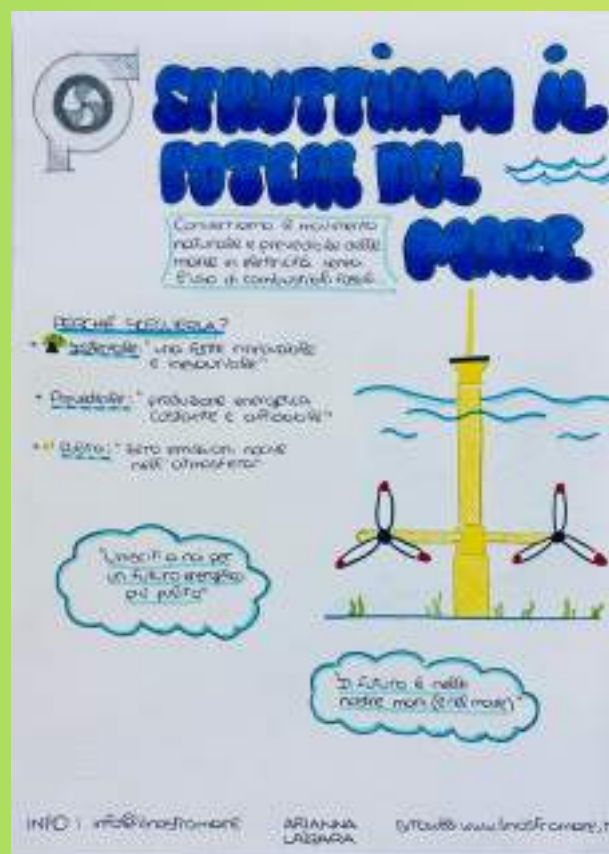 SFRUTTIAMO il
POTERE DEL
MARE
Convertiamo il movimento
naturale e prevedibile delle
maree in elettricità senza
l'uso di combustibili fossili
PERCHÉ SCEGLIERLA?
• Sostenibile: "una fonte rinnovabile
e inesauribile"
• Prevedibile: "produzione energetica
costante e affidabile"
• Pulita: "zero emissioni nocive
nell'atmosfera"
"Unisciti a noi per
un futuro energetico
più pulito"
"Il futuro è nelle
nostre mani (e nel mare)"
INFO: info@ilnostromare
ARIANNA